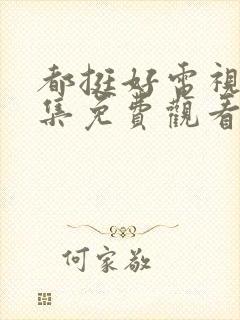 都挺好電視
集免費觀看
何家敬